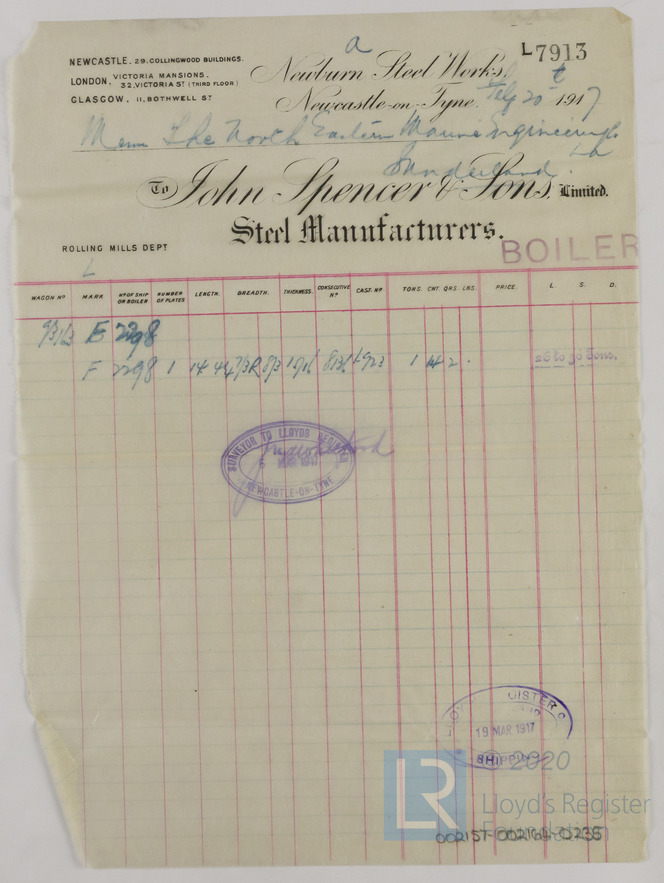 a
L7913
NEWCASTLE. 29. COLLINGWOOD BUILDINGS.
LONDON. VICTORIA MANSIONS. 32, VICTORIA ST (THIRD FLOOR)
GLASGOW, 11, BOTHWELL ST
Newburn Steel Works,
Newcastle-on-Tyne, 20 1917
Messrs The North Eastern Marine Engineering Co
Sunderland. Ld
To John Spencer & Sons, Limited.
Steel Manufacturers.
ROLLING MILLS DEPT
BOILER
L
WAGON No MARK No OF SHIP OR BOILER NUMBER OF PLATES LENGTH. BREADTH. THICKNESS. CONSECUTIVE No CAST. No TONS. CWT QRS. LBS. PRICE. L. S. D.
E 2298
F 2298 1 1 14 2 . 26 to 30 Tons.
SURVEYOR TO LLOYDS REGISTER
NEWCASTLE-ON-TYNE
19 MAR 1917
SHIPPING
2020
LR Lloyd's Register
Foundation
002157-002164-0236